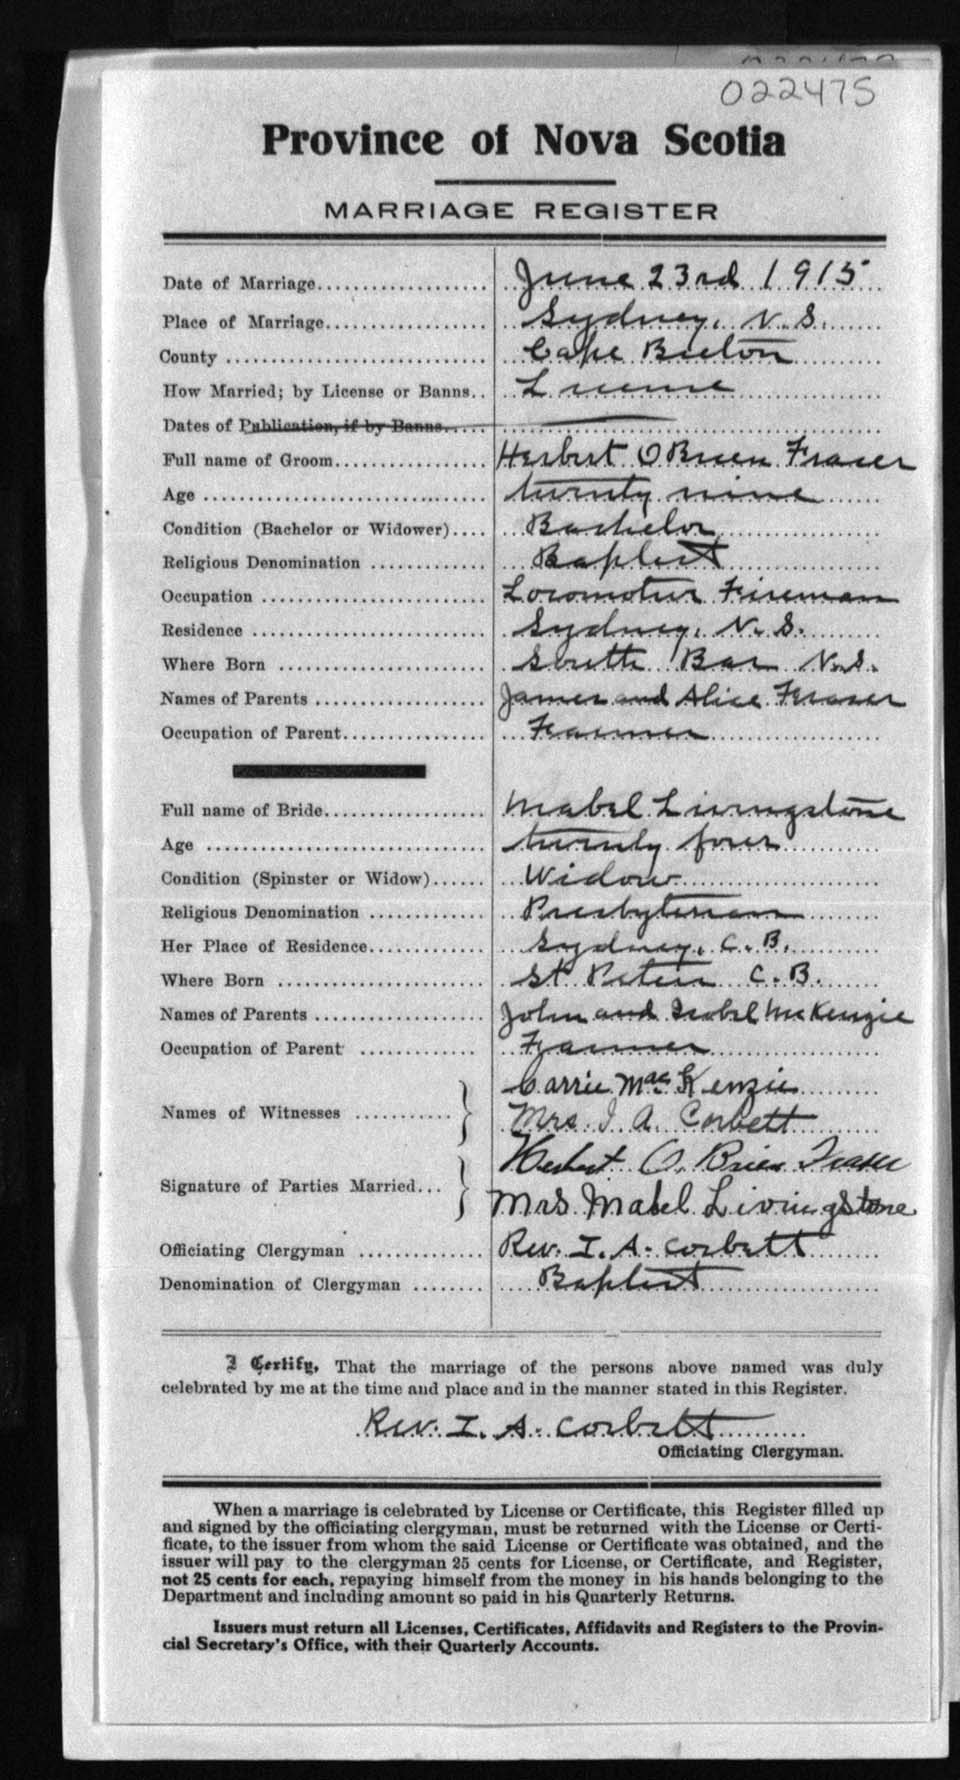 022475
Province of Nova Scotia
MARRIAGE REGISTER
Date of Marriage................... June 23rd 1915
Place of Marriage.................. Sydney, N.S.
County ............................. Cape Breton
How Married; by License or Banns.. License
Dates of Publication, if by Banns.....
Full name of Groom................. Herbert OBrien Fraser
Age ............................... twenty nine
Condition (Bachelor or Widower).... Bachelor
Religious Denomination ............. Baptist
Occupation ......................... Locomotive Fireman
Residence .......................... Sydney, N.S.
Where Born ........................ South Bar N.S.
Names of Parents ................... James and Alice Fraser
Occupation of Parent................ Farmer
Full name of Bride.................. Mabel Livingstone
Age ............................... twenty four
Condition (Spinster or Widow)...... Widow
Religious Denomination ............. Presbyterian
Her Place of Residence............. Sydney, C.B.
Where Born ........................ St Peters C.B.
Names of Parents ................... John and Isobel McKenzie
Occupation of Parent ............. Farmer
Carrie MacKenzie
Names of Witnesses ...........
Mrs. I. A. Corbett
Herbert O. Brien Fraser
Signature of Parties Married...
Mrs. Mabel Livingstone
Officiating Clergyman .............. Rev. I. A. Corbett
Denomination of Clergyman ........ Baptist
I Certify, That the marriage of the persons above named was duly
celebrated by me at the time and place and in the manner stated in this Register.
Rev. I. A. Corbett
Officiating Clergyman.
When a marriage is celebrated by License or Certificate, this Register filled up
and signed by the officiating clergyman, must be returned with the License or Certi-
ficate, to the issuer from whom the said License or Certificate was obtained, and the
issuer will pay to the clergyman 25 cents for License, or Certificate, and Register,
not 25 cents for each, repaying himself from the money in his hands belonging to the
Department and including amount so paid in his Quarterly Returns.
Issuers must return all Licenses, Certificates, Affidavits and Registers to the Provin-
cial Secretary's Office, with their Quarterly Accounts.